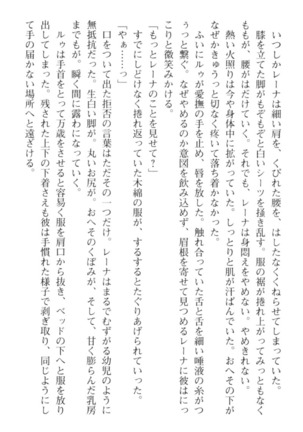 いつしかレーナは細い肩を、くびれた腰を、はしたなくくねらせてしまっていた。
膝を立てた脚がもぞもぞと白いシーツを掻き乱す。服の裾が捲れ上がってみっともなく
ももが、腰がはだけていく。それでも、レーナは身悶えをやめない。やめきれない。
熱い火照りは今や身体中に拡がっていた。しっとりと肌が汗ばんでいた。おへその下が
なぜかきゅうっと切なく疼いて落ち着かなかった。
ふいにルゥが愛撫の手を止め、唇を放した。触れ合っていた舌と舌を細い唾液の糸がつ
うっと繋ぐ。なぜやめるのか意図を飲み込めず、眉根を寄せて見つめるレーナに彼はにっ
こりと微笑みかける。
「もっとレーナのことを見せて?」
すでにしどけなく捲れ返っていた木綿の服が、するするとたぐりあげられていった。
「やぁ……っ」
口をついて出た拒否の言葉はただその一つだけ。レーナはまるでむずがる幼児のように
無抵抗だった。生白い脚が。丸いお尻が。おへそのくぼみが、そして、甘く膨らんだ乳房
までもが。瞬く間に露わになっていく。
ルゥは手首をとって万歳をさせると容易く服を肩口から抜き、ベッドの下へと服を放り
出してしまった。残された上下の下着さえも彼は手慣れた様子で剥ぎ取り、同じようにし
て手の届かない場所へと遠ざける。